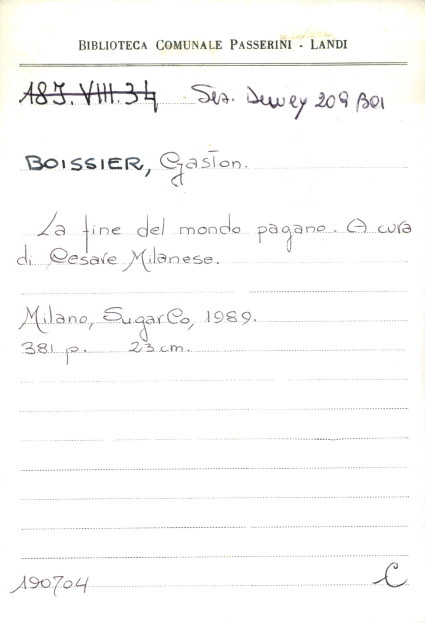 BIBLIOTECA COMUNALE PASSERINI - LANDI
18J.VIII.34 Sez. Dewey 209 BOI
BOISSIER, Gaston.
La fine del mondo pagano. A cura
di Cesare Milanese.
Milano, SugarCo, 1989.
381 p. 23 cm.
190704 C